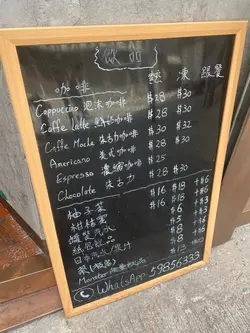 飲品
咖啡 熱 凍 跟餐
Cappuccino 泡沫咖啡 $28 $30
Caffe Latte 鮮奶咖啡 $28 $30
Caffe Mocha 朱古力咖啡 $30 $32
Americano 美式咖啡 $28 $30
Espresso 濃縮咖啡 $25
Chocolate 朱古力 $28 $30
柚子茶 $16 $18 +$6
柑桔蜜 $16 $18 +$6
罐裝汽水 $6 +$3
紙包飲品 $5
日本汽水/果汁 $8
Monster
WhatsApp: 59856333